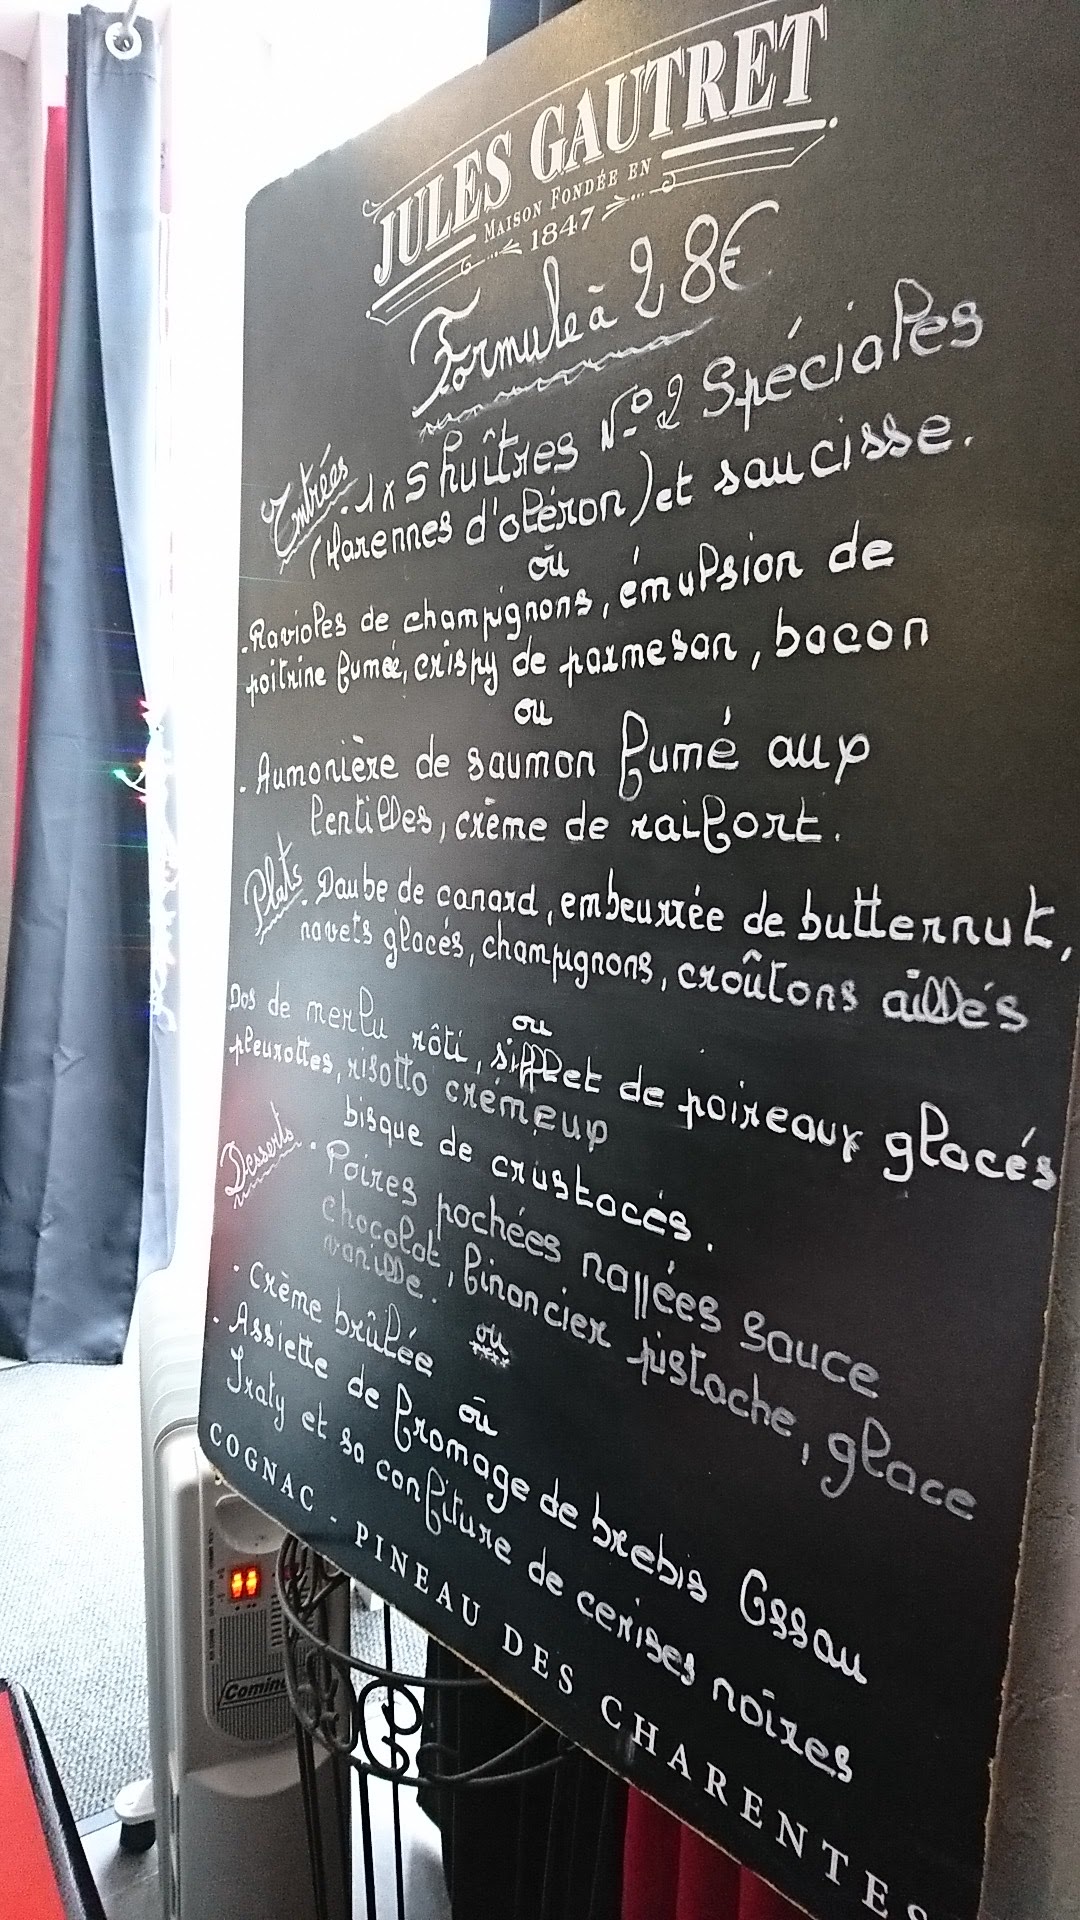 JULES GAUTRET
MAISON FONDÉE EN
1847
Formule à 28€
Entrées
. 1 x 5 huîtres N°2 Spéciales
(Marennes d'oléron) et saucisse.
ou
. Ravioles de champignons, émulsion de
poitrine fumée, crispy de parmesan, bacon
ou
. Aumonière de saumon fumé aux
lentilles, crème de raifort.
Plats
. Daube de canard, embeurrée de butternut,
navets glacés, champignons, croûtons aillés
ou
Dos de merlu rôti, sifflet de poireaux glacés
pleurottes, risotto crémeux
bisque de crustacés.
Desserts
. Poires pochées nappées sauce
chocolat, financier pistache, glace
vanille.
ou
. Crème brûlée
ou
. Assiette de fromage de brebis Ossau
Iraty et sa confiture de cerises noires
COGNAC - PINEAU DES CHARENTES